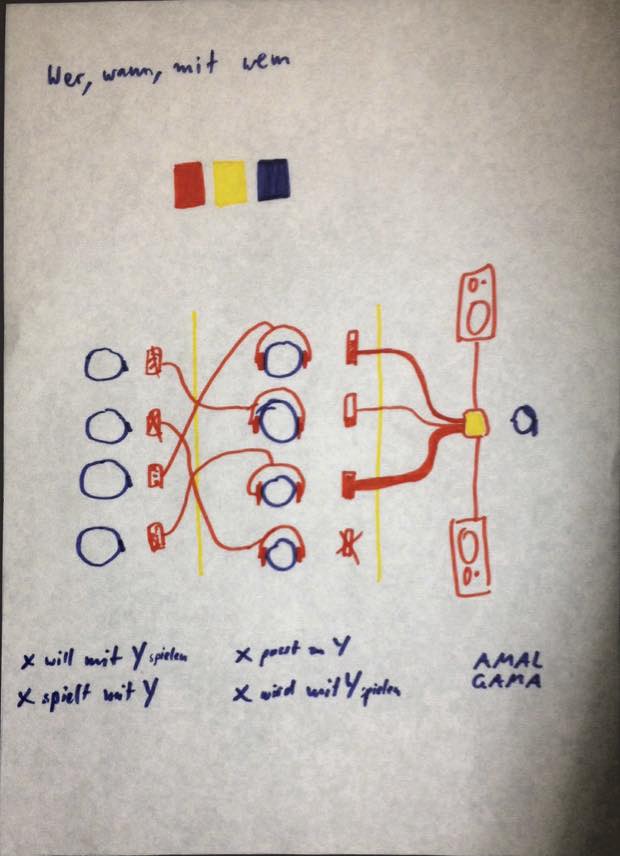 Wer, wann, mit wem
X will mit Y spielen
X passt zu Y
X spielt mit Y
X wird mit Y spielen
AMAL
GAMA